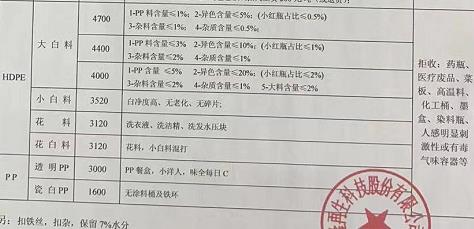 4700 1-PP料含量≤1%; 2-异色含量≤5%; (小红瓶占比≤0.5%)
3-杂料含量≤1%; 4-杂质含量≤0.5%;
HDPE
大 白 料
4400 1-PP料含量≤3% 2-异色含量≤10%; (小红瓶占比≤1%)
3-杂料含量≤2% 4-杂质含量≤1%
4000 1-PP含量 ≤5% 2-异色含量≤20%; (小红瓶占比≤2%)
3-杂料含量≤2% 4-杂质含量≤1% 5-大料含量≤2%
小 白 料 3520 白净度高、无老化、无碎片;
花 料 3120 洗衣液、洗洁精、洗发水压块
花 白 料 3120 花料,小白料混打
PP
透 明 PP 3000 PP餐盒,小洋人,味全每日C
瓷 白 PP 1600 无涂料桶及铁环
拒收:药瓶、
医疗废品、菜
板、高温料、
化工桶、墨
盒、染料瓶、
人感明显刺
激性或有毒
气味容器等
扣铁丝,扣杂,保留7%水分
再生科技股份有限公司